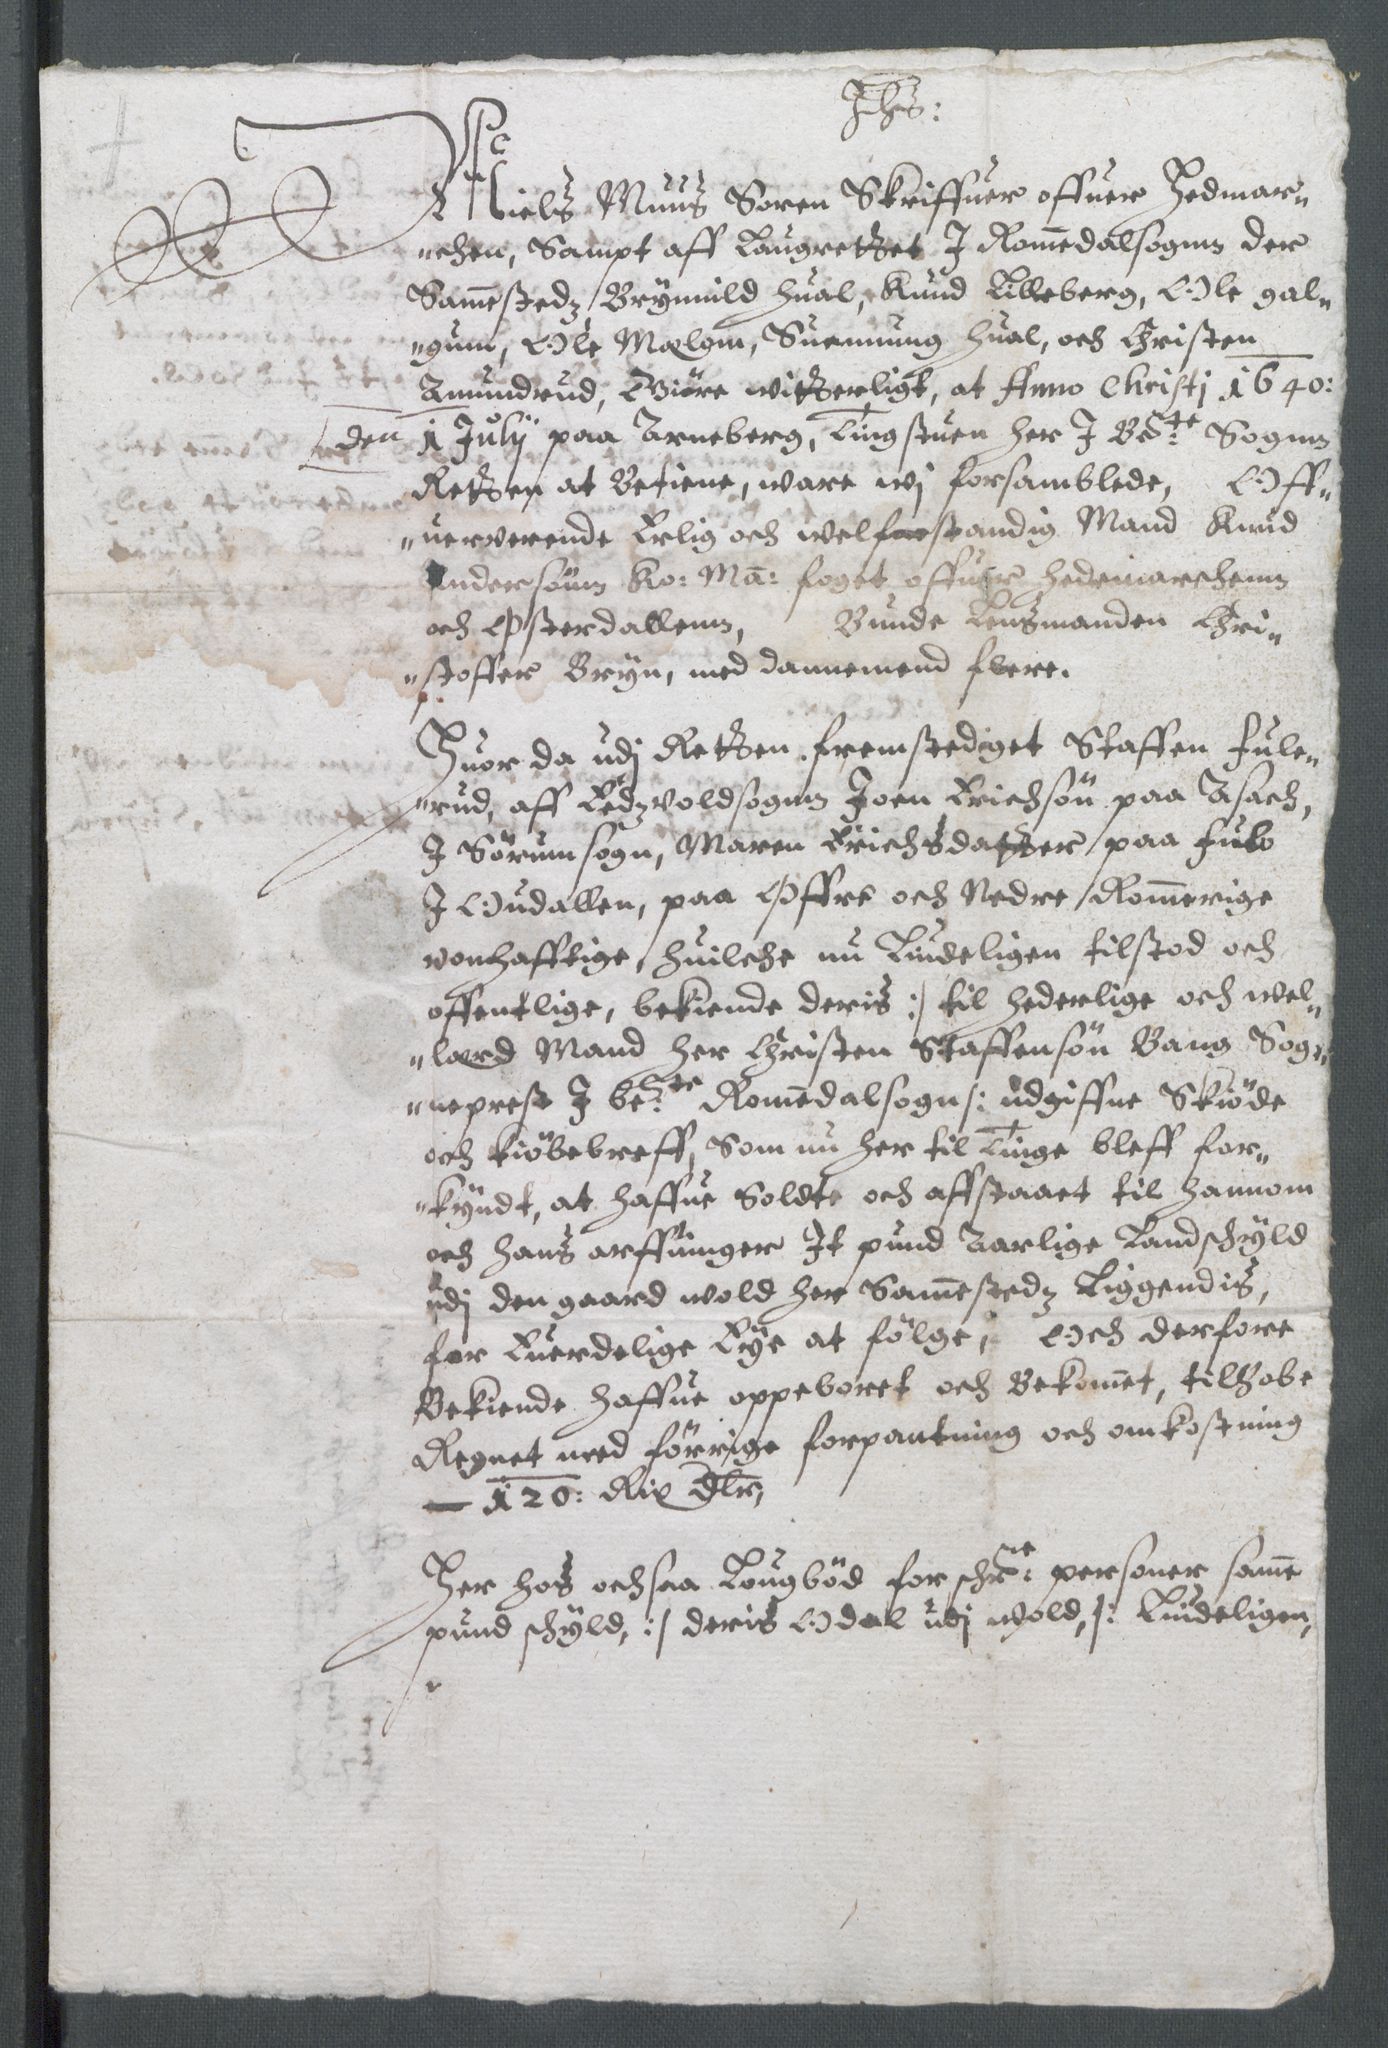 Jhs:
Niels Muus Soren Skriffuer offuer Hedmar-
"chen, Sampt aff Laugrettet J Romedalsogen der
Samestedz, Brÿnnild Hual, Knud Lilleberg, Ole gal-
"gum, Ole Mælom, Suennung Hual, och Christen
Amundrud, Giøre witterligt, at Anno Christj 1640:
den 1 Julÿ paa Arneberg, Tingstuen her J Bete Sogen
Retten at Betiene, ware wj forsamblede, Off-
"uerverende Erlig och welforstandig Mand Knud
Andersønn Ko: Ma: foget offuer Hedemarchenn
och Østerdallenn, Bunde Lensmanden Chri-
"stoffer Brÿn, med dannemend flere.
Huor da udj Retten fremstediget Staffen Fule-
"rud, aff Edzvoldsogen Joen Erichsøn paa Asach,
J Sørumsogn, Maren Erichsdatter paa Fulo
J Oudallen, paa Øffre och Nedre Romerige
wonhafftige, huilche nu Lindeligen tilstod och
offentlige, bekiende deris :/ til hederlige och wel-
"lærd Mand her Christen Staffensøn Bang Sog-
"neprest J bete Romedalsogn /: udgiffne Skiøde
och kiøbebreff, Som nu her til Tinge bleff for-
"kÿndt, at haffue Soldt och affstaaet til hannom
och hans arffuinger Jt pund Aarlige Landschÿld
udj den gaard wold her Samestedz Liggendis,
for Euerdelige Eÿe at følge, Och derfore
Bekiende haffue oppeboret och Bekomet, tilhobe
Regnet med førrige forpantning och omkostning
— 120: Rix dlr,
Her hos ochsaa Lougbød forschrne: personer same
pund schÿld, :/ deris Odal udj wold, /: Lindeligen,